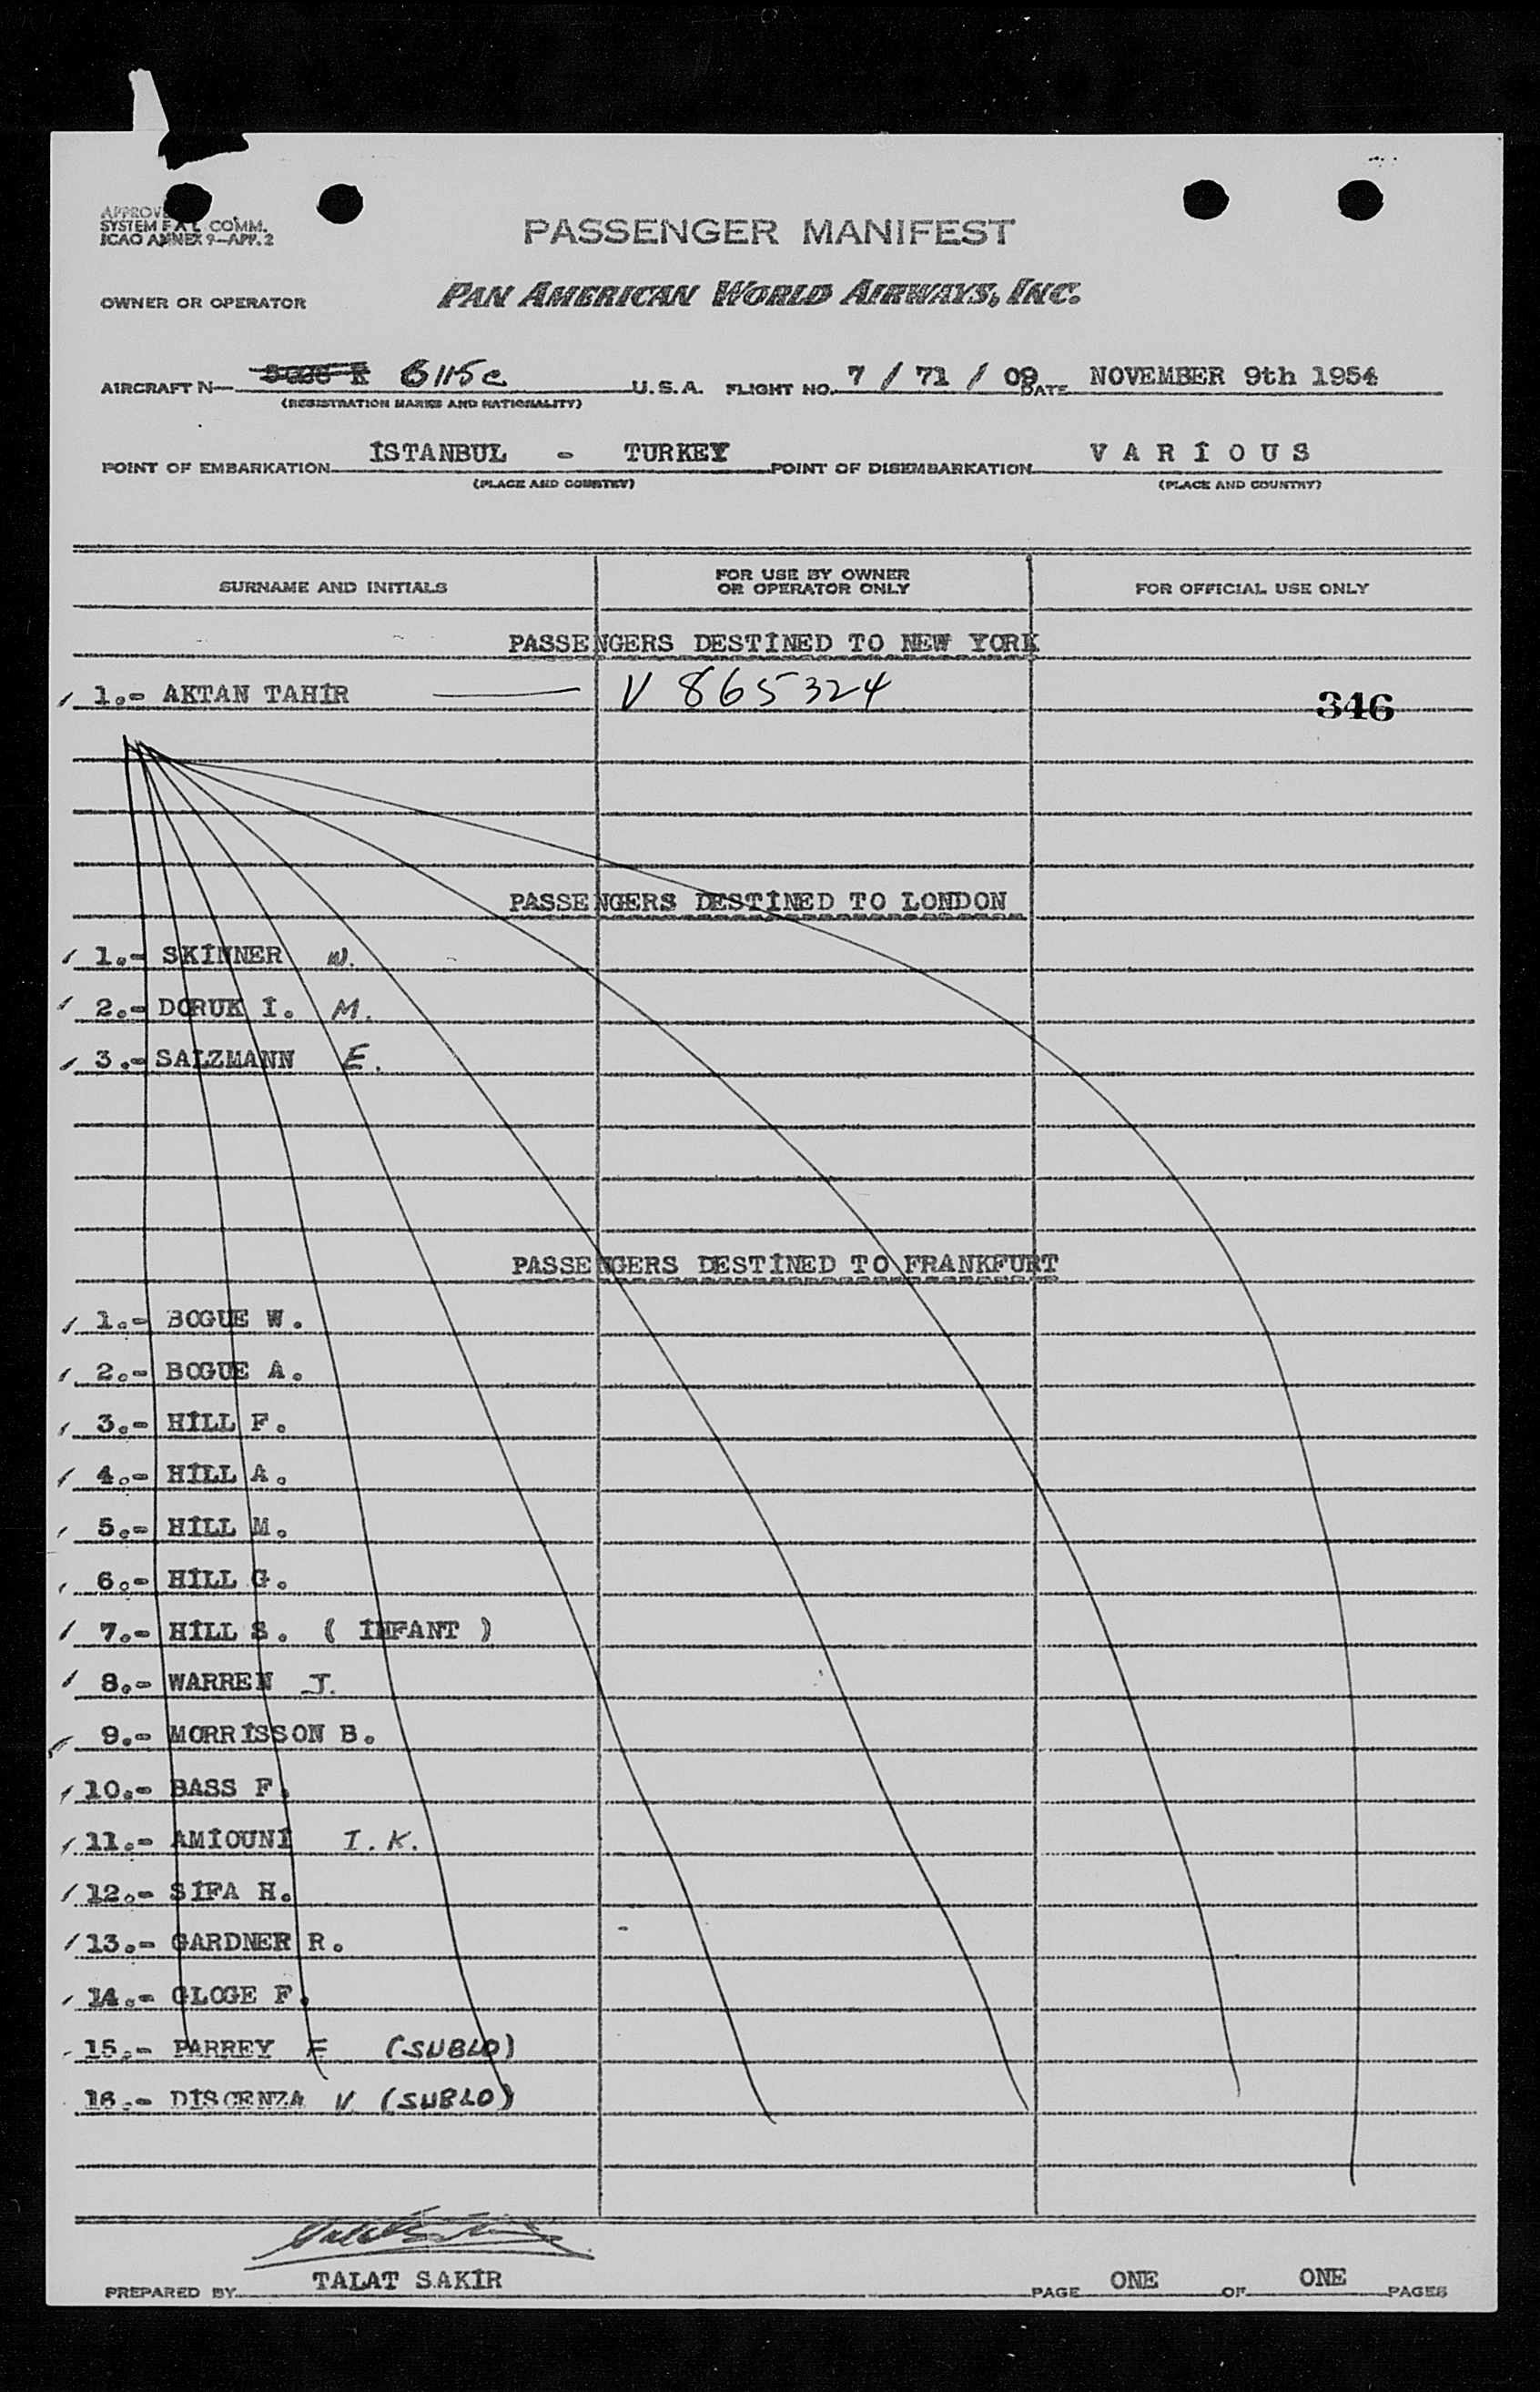 SYSTEM F A L COMM.
ICAO ANNEX 9—APP. 2
PASSENGER MANIFEST
OWNER OR OPERATOR PAN AMERICAN WORLD AIRWAYS, INC.
AIRCRAFT N— 6115c U.S.A. FLIGHT NO. 7 / 71 / 09 DATE NOVEMBER 9th 1954
(REGISTRATION MARKS AND NATIONALITY)
POINT OF EMBARKATION İSTANBUL - TURKEY POINT OF DISEMBARKATION V A R İ O U S
(PLACE AND COUNTRY) (PLACE AND COUNTRY)
SURNAME AND INITIALS FOR USE BY OWNER OR OPERATOR ONLY FOR OFFICIAL USE ONLY
PASSENGERS DESTİNED TO NEW YORK
1.- AKTAN TAHİR V 865324 346
PASSENGERS DESTİNED TO LONDON
1.- SKİNNER W.
2.- DORUK İ. M.
3.- SALZMANN E.
PASSENGERS DESTİNED TO FRANKFURT
1.- BOGUE W.
2.- BOGUE A.
3.- HİLL F.
4.- HİLL A.
5.- HİLL M.
6.- HİLL G.
7.- HİLL S. ( İNFANT )
8.- WARREN J.
9.- MORRİSSON B.
10.- BASS F.
11.- AMİOUNİ I.K.
12.- SİFA H.
13.- GARDNER R.
14.- GLOGE F.
15.- PARREY F (SUBLO)
16.- DİSCENZA V (SUBLO)
PREPARED BY TALAT SAKİR PAGE ONE OF ONE PAGES